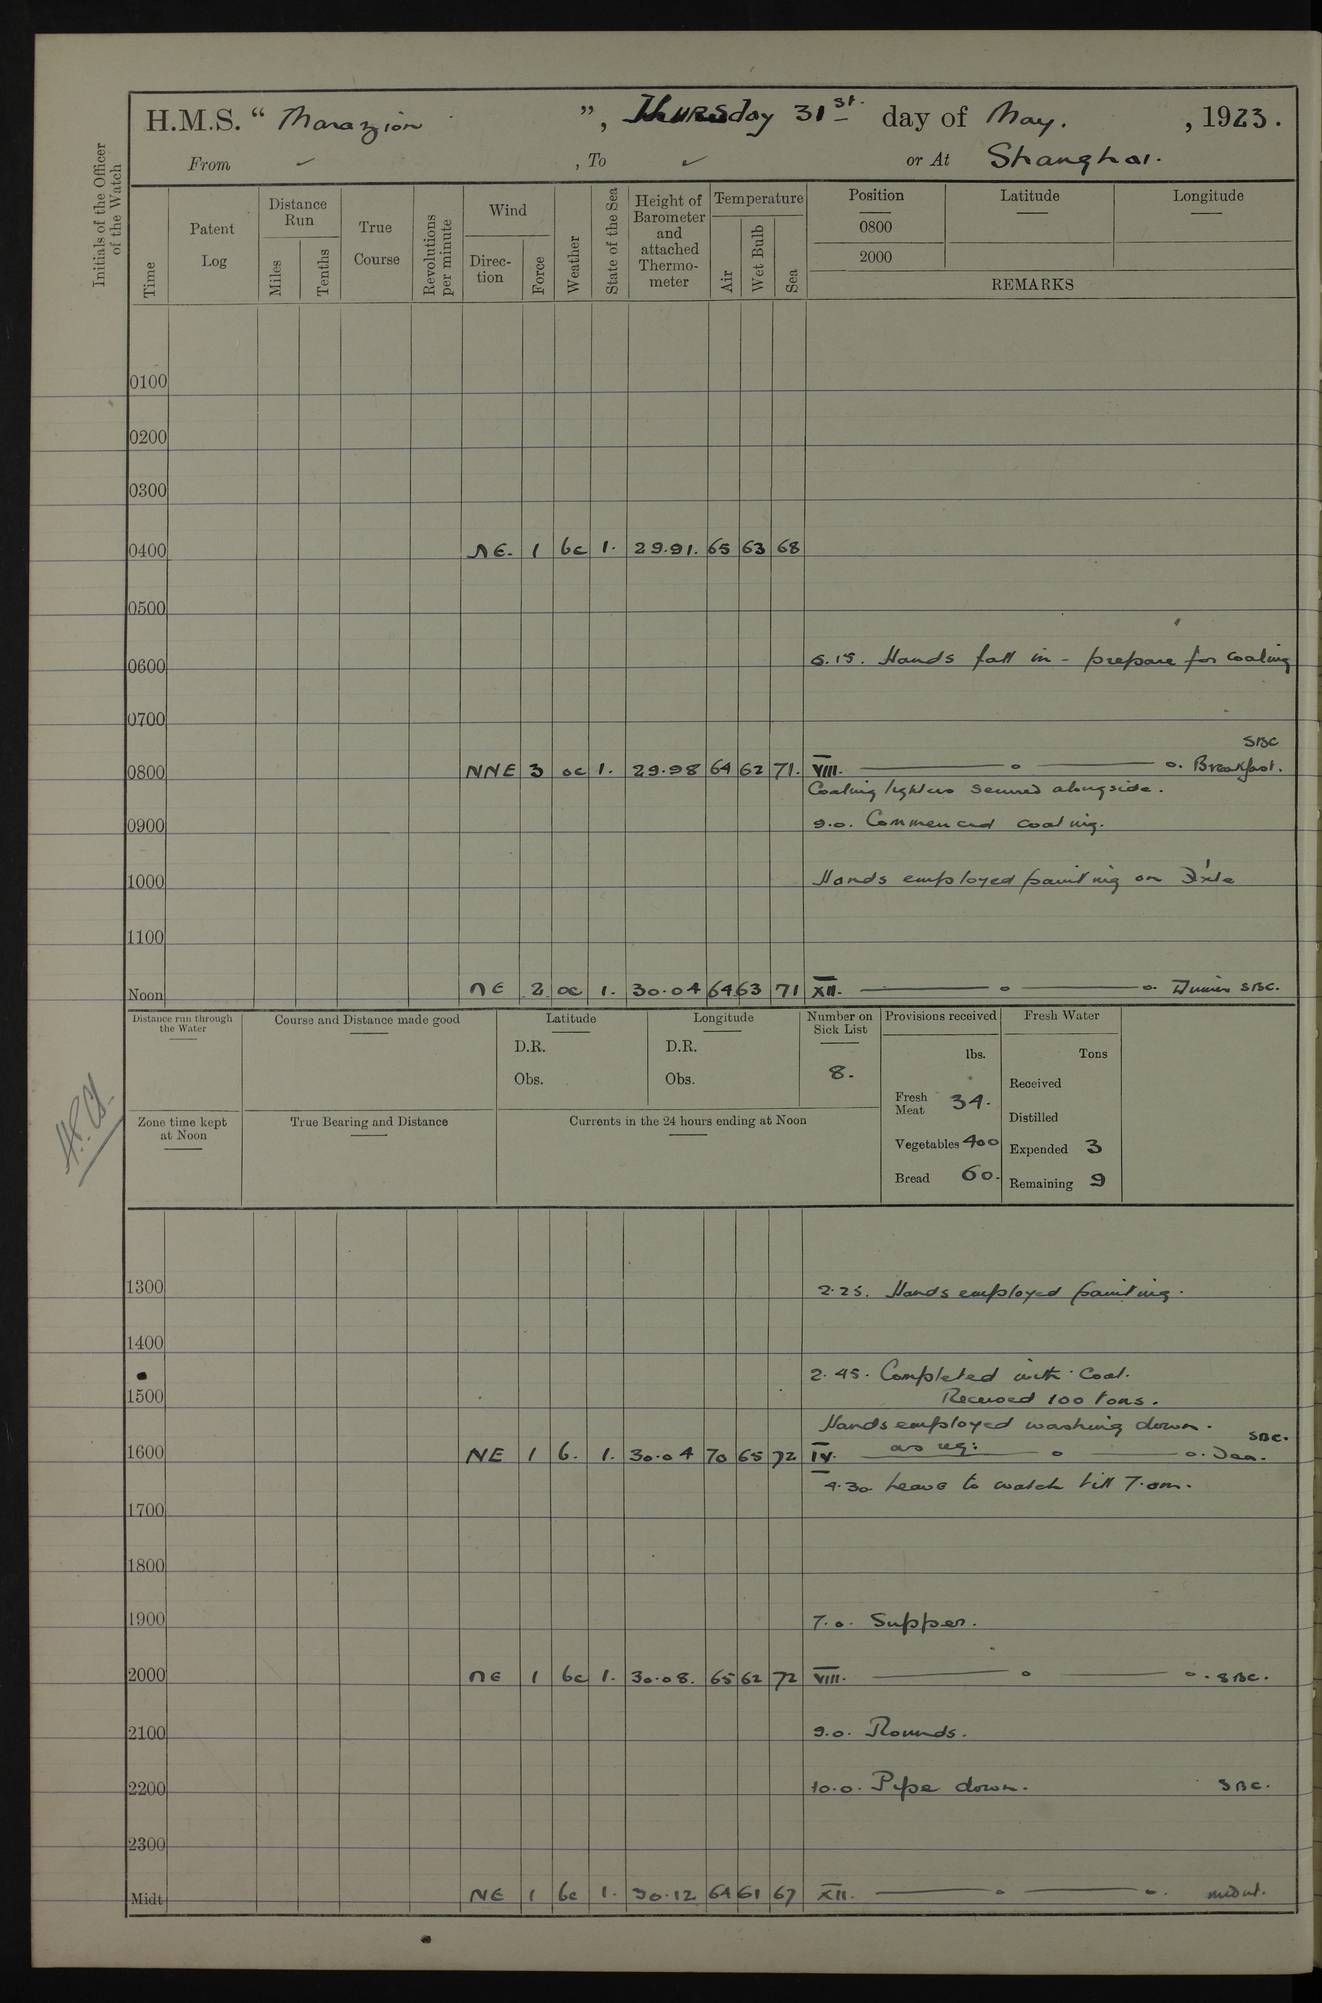 H.M.S. “ Marazion ”, Thursday 31st. day of May. , 1923.
From ✓ , To ✓ or At Shanghai.
Initials of the Officer of the Watch
Time
Patent Log
Distance Run
Miles
Tenths
True Course
Revolutions per minute
Wind
Direction
Force
Weather
State of the Sea
Height of Barometer and attached Thermometer
Temperature
Air
Wet Bulb
Sea
Position
Latitude
Longitude
0800
2000
REMARKS
0100
0200
0300
0400 NE. 1 bc 1. 29.91. 65 63 68
0500
0600 6.15. Hands fall in - prepare for coaling
0700
SBC
0800 NNE 3 oc 1. 29.98 64 62 71. VIII. ——— o ——— o. Breakfast.
Coaling lighters secured alongside.
0900 9.0. Commenced coaling.
1000 Hands employed painting on
1100
Noon NE 2 oc 1. 30.04 64 63 71 XII. ——— o ——— o. Dinner SBC.
Distance run through the Water
Course and Distance made good
Latitude
D.R.
Obs.
Longitude
D.R.
Obs.
Number on Sick List
8.
Provisions received
lbs.
Fresh Meat 34.
Vegetables 400
Bread 60.
Fresh Water
Tons
Received
Distilled
Expended 3
Remaining 9
Zone time kept at Noon
True Bearing and Distance
Currents in the 24 hours ending at Noon
1300 2.25. Hands employed painting.
1400
2.45. Completed with Coal.
1500 Received 100 tons.
Hands employed washing down. SBC.
1600 NE 1 b. 1. 30.04 70 65 72 IV. as req: ——— o ——— o. Tea.
4.30 Leave to watch till 7.am.
1700
1800
1900 7.0. Supper.
2000 NE 1 bc 1. 30.08. 65 62 72 VIII. ——— o ——— o. SBC.
2100 9.0. Rounds.
2200 10.0. Pipe down. SBC.
2300
Midt NE 1 bc 1. 30.12 64 61 67 XII. ——— o ——— o.